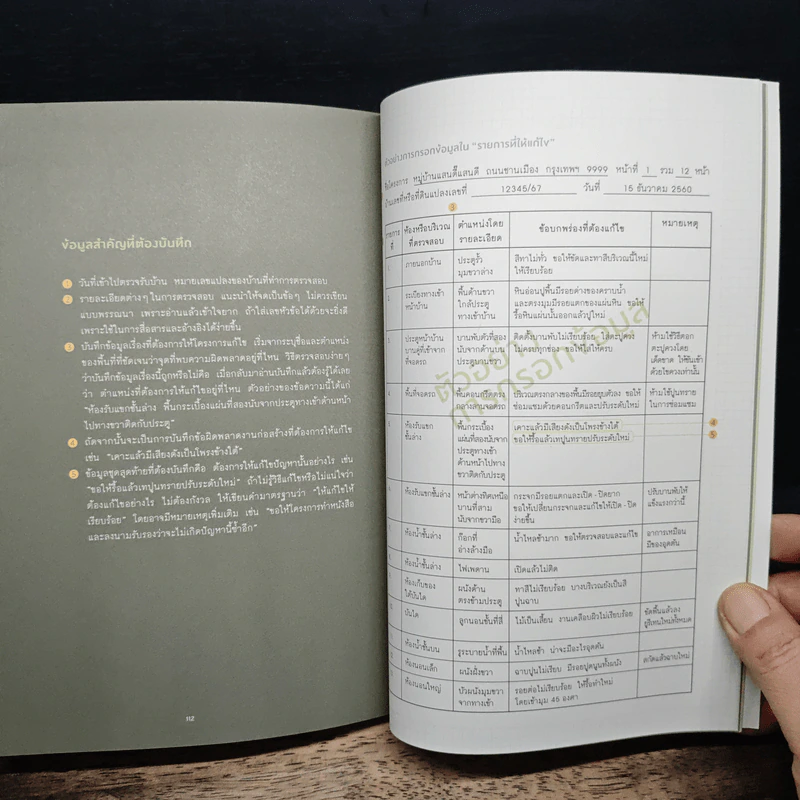 ข้อมูลสำคัญที่ต้องบันทึก
1 วันที่เข้าไปตรวจรับบ้าน หมายเลขแปลงของบ้านที่ทำการตรวจสอบ
2 รายละเอียดต่างๆ ในการตรวจสอบ แนะนำให้จดเป็นข้อๆ ไม่ควรเขียน
แบบพรรณนา เพราะอ่านแล้วเข้าใจยาก ถ้าใส่เลขหัวข้อได้ด้วยจะยิ่งดี
เพราะใช้ในการสื่อสารและอ้างอิงได้ง่ายขึ้น
3 บันทึกข้อมูลเรื่องที่ต้องการให้โครงการแก้ไข เริ่มจากระบุชื่อและตำแหน่ง
ของพื้นที่ที่ชัดเจนว่าจุดที่พบความผิดพลาดอยู่ที่ไหน วิธีตรวจสอบง่ายๆ
ว่าบันทึกข้อมูลเรื่องนี้ถูกหรือไม่คือ เมื่อกลับมาอ่านบันทึกแล้วต้องรู้ได้เลย
ว่า ตำแหน่งที่ต้องการให้แก้ไขอยู่ที่ไหน ตัวอย่างของข้อความนี้ได้แก่
"ห้องรับแขกชั้นล่าง พื้นกระเบื้องแผ่นที่สองนับจากประตูทางเข้าด้านหน้า
ไปทางขวาติดกับประตู"
4 ถัดจากนั้นจะเป็นการบันทึกข้อผิดพลาดงานก่อสร้างที่ต้องการให้แก้ไข
เช่น "เคาะแล้วมีเสียงดังเป็นโพรงข้างใต้"
5 ข้อมูลชุดสุดท้ายที่ต้องบันทึกคือ ต้องการให้แก้ไขปัญหานั้นอย่างไร เช่น
"ขอให้รื้อแล้วเทปูนทรายปรับระดับใหม่" ถ้าไม่รู้วิธีแก้ไขหรือไม่แน่ใจว่า
ต้องแก้ไขอย่างไร ไม่ต้องกังวล ให้เขียนคำมาตรฐานว่า "ให้แก้ไขให้
เรียบร้อย" โดยอาจมีหมายเหตุเพิ่มเติม เช่น "ขอให้โครงการทำหนังสือ
และลงนามรับรองว่าจะไม่เกิดปัญหานี้ซ้ำอีก"
112
ตัวอย่างการกรอกข้อมูลใน "รายการที่ให้แก้ไข"
ชื่อโครงการ หมู่บ้านแสนดี๊แสนดี ถนนชานเมือง กรุงเทพฯ 9999 หน้าที่ 1 รวม 12 หน้า
บ้านเลขที่หรือที่ดินแปลงเลขที่ 12345/67 วันที่ 15 ธันวาคม 2560
3
ห้องหรือบริเวณ ตำแหน่งโดย ข้อบกพร่องที่ต้องแก้ไข หมายเหตุ
ที่ ที่ตรวจสอบ รายละเอียด
ภายนอกบ้าน ประตูรั้ว สีทาไม่ทั่ว ขอให้ขัดและทาสีบริเวณนี้ใหม่
มุมขวาล่าง ให้เรียบร้อย
ระเบียงทางเข้า พื้นด้านขวา หินอ่อนปูพื้นมีรอยด่างของคราบน้ำ
หน้าบ้าน ใกล้ประตู และตรงมุมมีรอยแตกของแผ่นหิน ขอให้
ทางเข้าบ้าน รื้อหินแผ่นนั้นออกแล้วปูใหม่
ประตูหน้าบ้าน บานพับตัวที่สอง ติดตั้งบานพับไม่เรียบร้อย ใส่ตะปูควง ห้ามใช้วิธีตอก
บานคู่ที่เข้าจาก นับจากด้านบน ไม่ครบทุกช่อง ขอให้ใส่ให้ครบ ตะปูควงโดย
ที่จอดรถ ประตูบานขวา เด็ดขาด ให้ขันเข้า
ด้วยไขควงเท่านั้น
4 พื้นที่จอดรถ พื้นคอนกรีตตรง บริเวณตรงกลางของพื้นมีรอยยุบตัวลง ขอให้ ห้ามใช้ปูนทราย
กลางลานจอดรถ ซ่อมแซมด้วยคอนกรีตและปรับระดับใหม่ ในการซ่อมแซม
ห้องรับแขก พื้นกระเบื้อง เคาะแล้วมีเสียงดังเป็นโพรงข้างใต้ 4
ชั้นล่าง แผ่นที่สองนับจาก ขอให้รื้อแล้วเทปูนทรายปรับระดับใหม่ 5
ประตูทางเข้า
ด้านหน้าไปทาง
ขวาติดกับประตู
ห้องรับแขกชั้นล่าง หน้าต่างทิศเหนือ กระจกมีรอยแตกและเปิด - ปิดยาก ปรับบานพับให้
บานที่สาม ขอให้เปลี่ยนกระจกและแก้ไขให้เปิด - ปิด แข็งแรงกว่านี้
นับจากขวามือ ง่ายขึ้น
ห้องน้ำชั้นล่าง ก๊อกที่ น้ำไหลช้ามาก ขอให้ตรวจสอบและแก้ไข อาการเหมือน
อ่างล้างมือ มีของอุดตัน
ห้องน้ำชั้นล่าง ไฟเพดาน เปิดแล้วไม่ติด
ห้องเก็บของ ผนังด้าน ทาสีไม่เรียบร้อย บางบริเวณยังเป็นสี
ใต้บันได ตรงข้ามประตู ปูนฉาบ
บันได ลูกนอนขั้นที่สี่ ไม้เป็นเสี้ยน งานเคลือบผิวไม่เรียบร้อย ขัดพื้นแล้วลง
ยูรีเทนใหม่ทั้งหมด
ห้องน้ำชั้นบน รูระบายน้ำที่พื้น น้ำไหลช้า น่าจะมีอะไรอุดตัน
ห้องนอนเล็ก ผนังฝั่งขวา ฉาบปูนไม่เรียบ มีรอยปูดนูนทั้งผนัง สกัดแล้วฉาบใหม่
ห้องนอนใหญ่ บัวผนังมุมขวา รอยต่อไม่เรียบร้อย ให้รื้อทำใหม่
จากทางเข้า โดยเข้ามุม 45 องศา
ตัวอย่าง
การกรอกข้อมูล